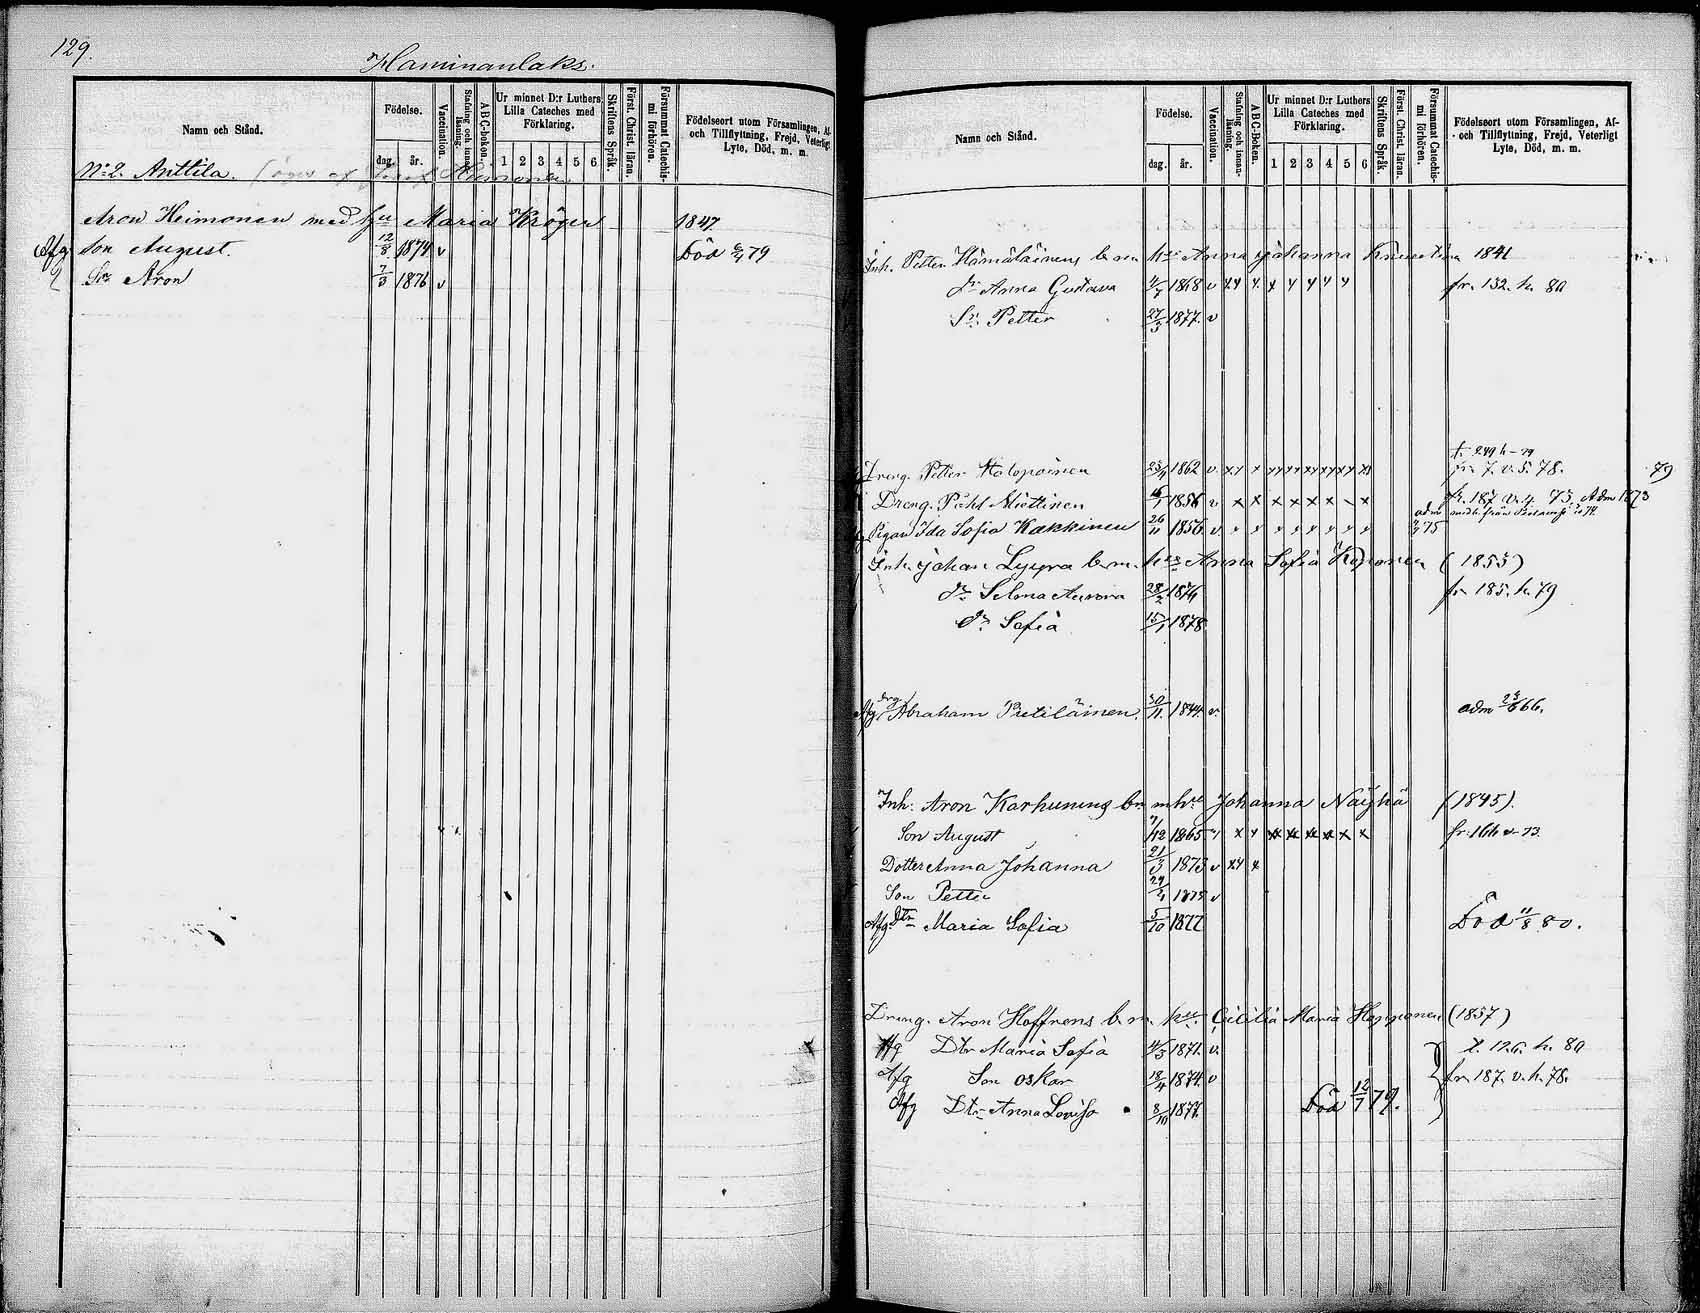 129.
Haminanlaks.
Namn och Stånd.
Födelse.
dag. år.
Vaccination.
Stafning och innan-läsning.
ABC-boken.
Ur minnet D:r Luthers Lilla Cateches med Förklaring.
1 2 3 4 5 6
Skriftens Språk.
Först. Christ. läran.
Försummat Catechis-mi förhören.
Födelseort utom Församlingen, Af- och Tillflyttning, Frejd, Veterligt Lyte, Död, m. m.
No 2. Anttila. (äges af Heimonen
Aron Heimonen med hu Maria Kröger 1847
Afg Son August. 12/8 1874 v Död 79
Sn Aron 7/3 1876 v
Namn och Stånd.
Födelse.
dag. år.
Vaccination.
Stafning och innan-läsning.
ABC-Boken.
Ur minnet D:r Luthers Lilla Cateches med Förklaring.
1 2 3 4 5 6
Skriftens Språk.
Först. Christ. läran.
Försummat Catechis-mi förhören.
Födelseort utom Församlingen, Af- och Tillflyttning, Frejd, Veterligt Lyte, Död, m. m.
Inh. Petter Hämäläinens b. m. hu Anna Johanna 1841
dr Anna Gustava 1868 v fr. 132. h. 80
Sn Petter 27/3 1877. v
t. 249 h - 79
Dreng. Petter 1862 v. fr. 7. v. S. 78. 79
Dreng. Påhl Miettinen 1856 v fr. 187 v. 4. 73. Adm 1873
Pigan Ida Sofia Kakkinen 26/11 1856. v. adm 75
Inh. Johan Lyyra b. m. hu Anna Sofia Koponen (1853)
dr Selma Aurora 28/2 1876 fr. 185. h. 79
dr. Sofia 15/1 1878
Afg drg Abraham Pietiläinen. 30/11. 1844. v. adm 66.
Inh: Aron Karhunens b. m hu Johanna Näyhä (1845).
Son August 7/12 1865 v fr. 166 v - 73
Dotter Anna Johanna 21/3 1873 v
Son Petter v
Afg. Dtr Maria Sofia 5/10 1877 Död 11/8 80.
Dreng. Aron Hoffrens b. m. hu Cicilia Maria Hopponen (1857)
Afg Dtr Maria Sofia 1871. v. t. 126. h. 80
Afg Son Oskar 18/4 1874. v fr. 187. v. h. 78.
Afg Dtr Anna Lovisa 8/10 1877. Död 12/7 79.